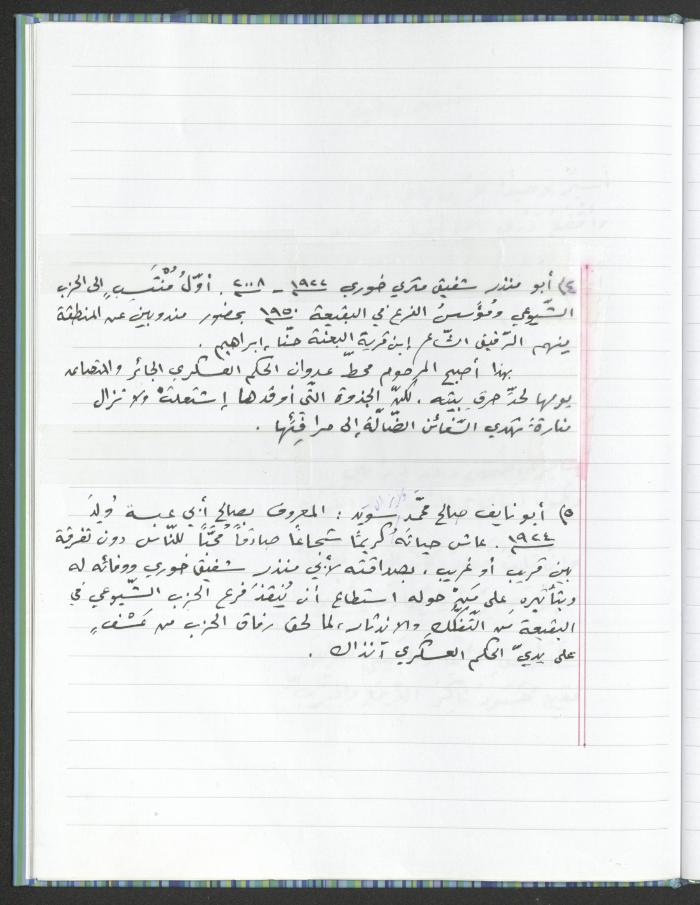 ٤) أبو منذر شفيق متري خوري ١٩٢٢ - ٢٠٠٨ . أوّلُ مُنْتَسِبٍ إلى الحزب
الشّيوعي ومُؤَسِسُ الفرع في البقيعة ١٩٥٠ بحضور مندوبين عن المنطقة
منهم الرّفيق الشّاعر إبن قرية البعنة حنّا إبراهيم .
بهذا أصبح المرحوم محطّ عدوان الحكم العسكري الجائر
يومها لحدِّ حرق بيته . لكنّ الجذوة الّتي أوقدها إشتعلتْ ولا تزال
منارةً تهدي السّفائن الضّالّة إلى مرافِئِها .
٥) أبو نايف صالح محمَّد سويَد : المعروف بصالح أبي عبسة وُلِدَ
١٩٢٤ . عاش حياتَهُ كريمًا شجاعًا صادقًا محبًّا للنّاس دون تفرقة
بين قريب أو غريب . بصداقته لأبي منذر شفيق خوري ووفائه له
وبتأثيرهِ على مَنْ حوله استطاع أن يُنْقذَ فرع الحزب الشّيوعي في
البقيعة من التّفكّكِ والاندثار ، لما لحق رفاق الحزب من عَسْفٍ
على يديّ الحكم العسكري آنذاك .